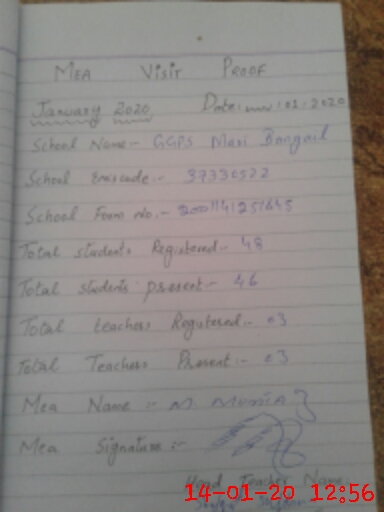 MEA VISIT PROOF
January 2020 Date: 01-2020
School Name:- GGPS Mari Bangail
School Emiscode:- 37330522
School Form No.:- 2001141251645
Total students Registered:- 48
Total students present:- 46
Total teachers Registered:- 03
Total Teachers Present:- 03
Mea Name:- M
Mea Signature:-
Head Teacher Name
14-01-20 12:56